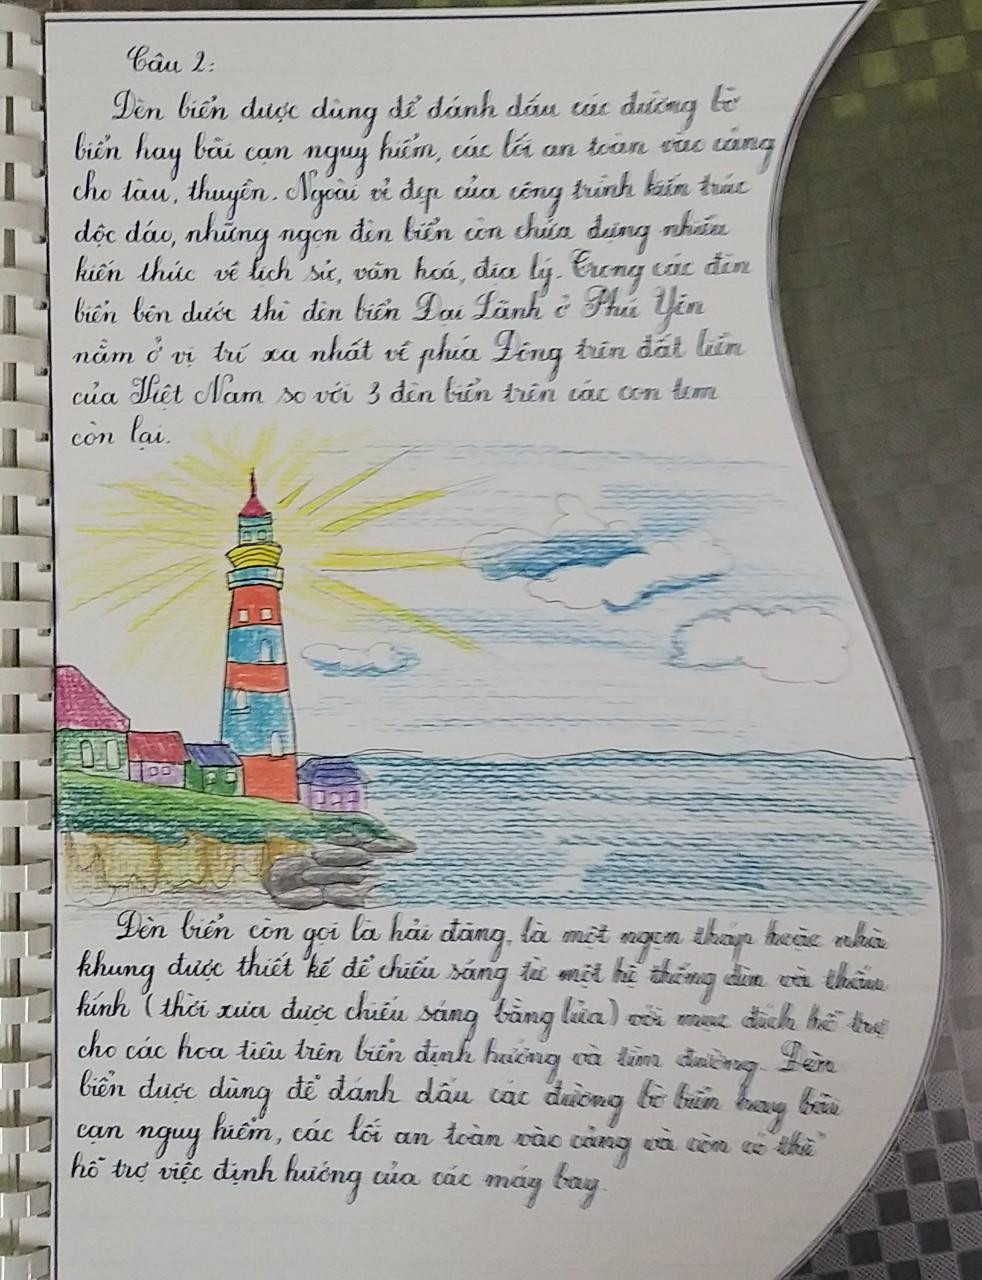 Câu 2:
Đèn biển được dùng để đánh dấu các đường bờ
biển hay bãi cạn nguy hiểm, các lối an toàn vào cảng
cho tàu, thuyền. Ngoài vẻ đẹp của công trình kiến trúc
độc đáo, những ngọn đèn biển còn chứa đựng nhiều
kiến thức về lịch sử, văn hoá, địa lý. Trong các đèn
biển bên dưới thì đèn biển Đại Lãnh ở Phú Yên
nằm ở vị trí xa nhất về phía Đông trên đất liền
của Việt Nam so với 3 đèn biển trên các con tem
còn lại.
Đèn biển còn gọi là hải đăng, là một ngọn tháp hoặc nhà
khung được thiết kế để chiếu sáng từ một hệ thống đèn và thấu
kính (thời xưa được chiếu sáng bằng lửa) với mục đích hỗ trợ
cho các hoa tiêu trên biển định hướng và tìm đường. Đèn
biển được dùng để đánh dấu các đường bờ biển hay bãi
cạn nguy hiểm, các lối an toàn vào cảng và còn có thể
hỗ trợ việc định hướng của các máy bay.